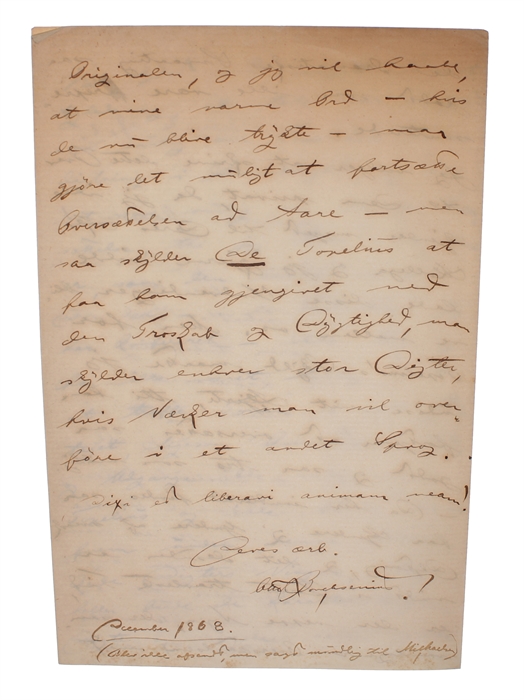 Originalen, og jeg vil haabe,
at mine varme Ord – hvis
de nu blive trykte – maa
gjöre det muligt at fortsætte
Oversættelsen ad Aare – men
saa skylder De Topelius at
faa ham gjengivet med
den Troskab og Dygtighed, man
skylder enhver stor Digter,
hvis Værker man vil over-
före i et andet Sprog.
Dixi et liberavi animam meam!
Deres ærb.
December 1868.
(Blev ikke afsendt, men sagt mundtlig til